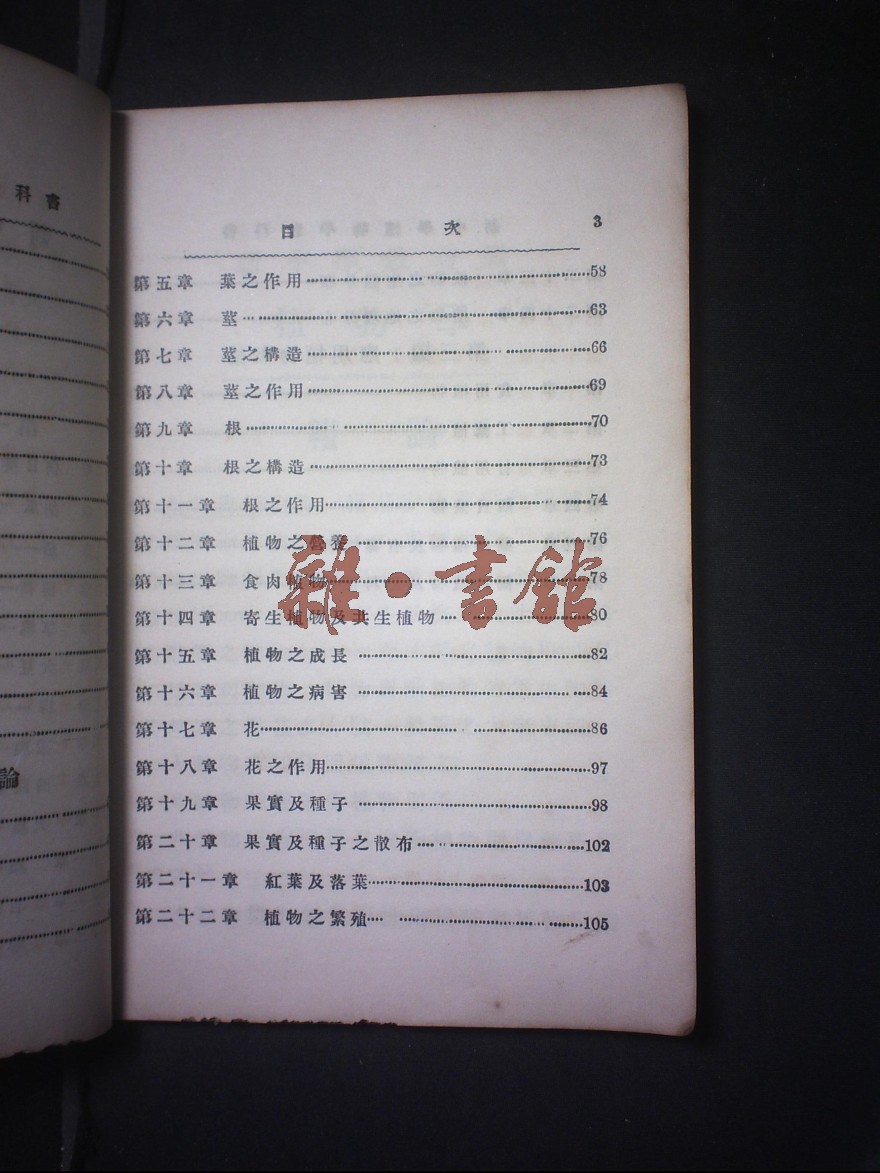 書科
論
目次 3
第五章 葉之作用 58
第六章 莖 63
第七章 莖之構造 66
第八章 莖之作用 69
第九章 根 70
第十章 根之構造 73
第十一章 根之作用 74
第十二章 植物之營養 76
第十三章 食肉植物 78
第十四章 寄生植物及共生植物 80
第十五章 植物之成長 82
第十六章 植物之病害 84
第十七章 花 86
第十八章 花之作用 97
第十九章 果實及種子 98
第二十章 果實及種子之散布 102
第二十一章 紅葉及落葉 103
第二十二章 植物之繁殖 105
雜·書館